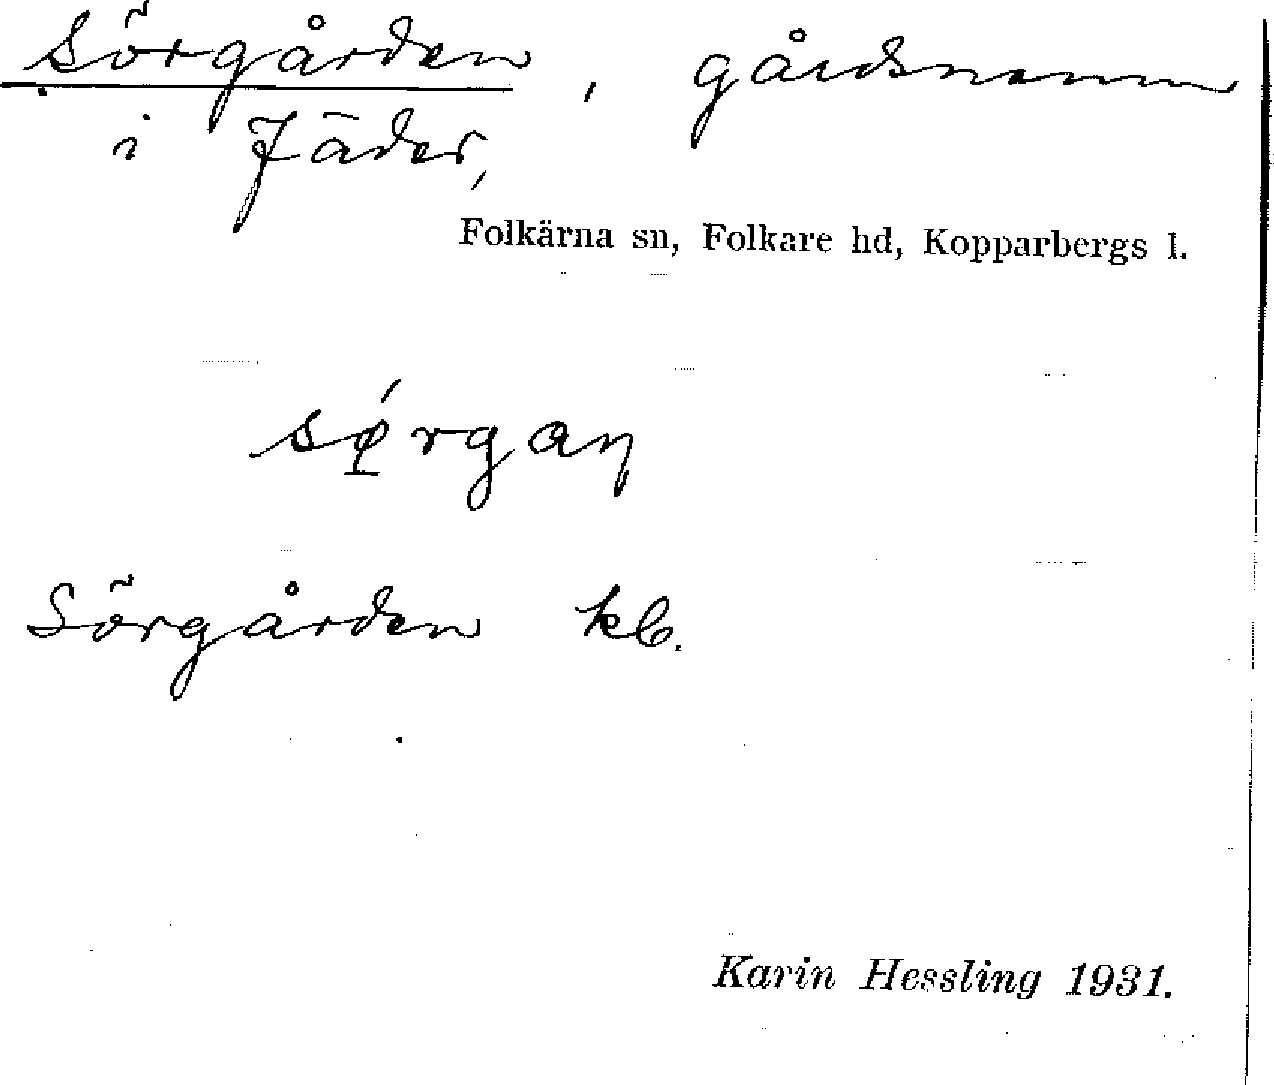 Sörgården, gårdsnamn
i Jäder,
Folkärna sn, Folkare hd, Kopparbergs l.
sǿ̠rgaꞑ
Sörgården kb.
Karin Hessling 1931.